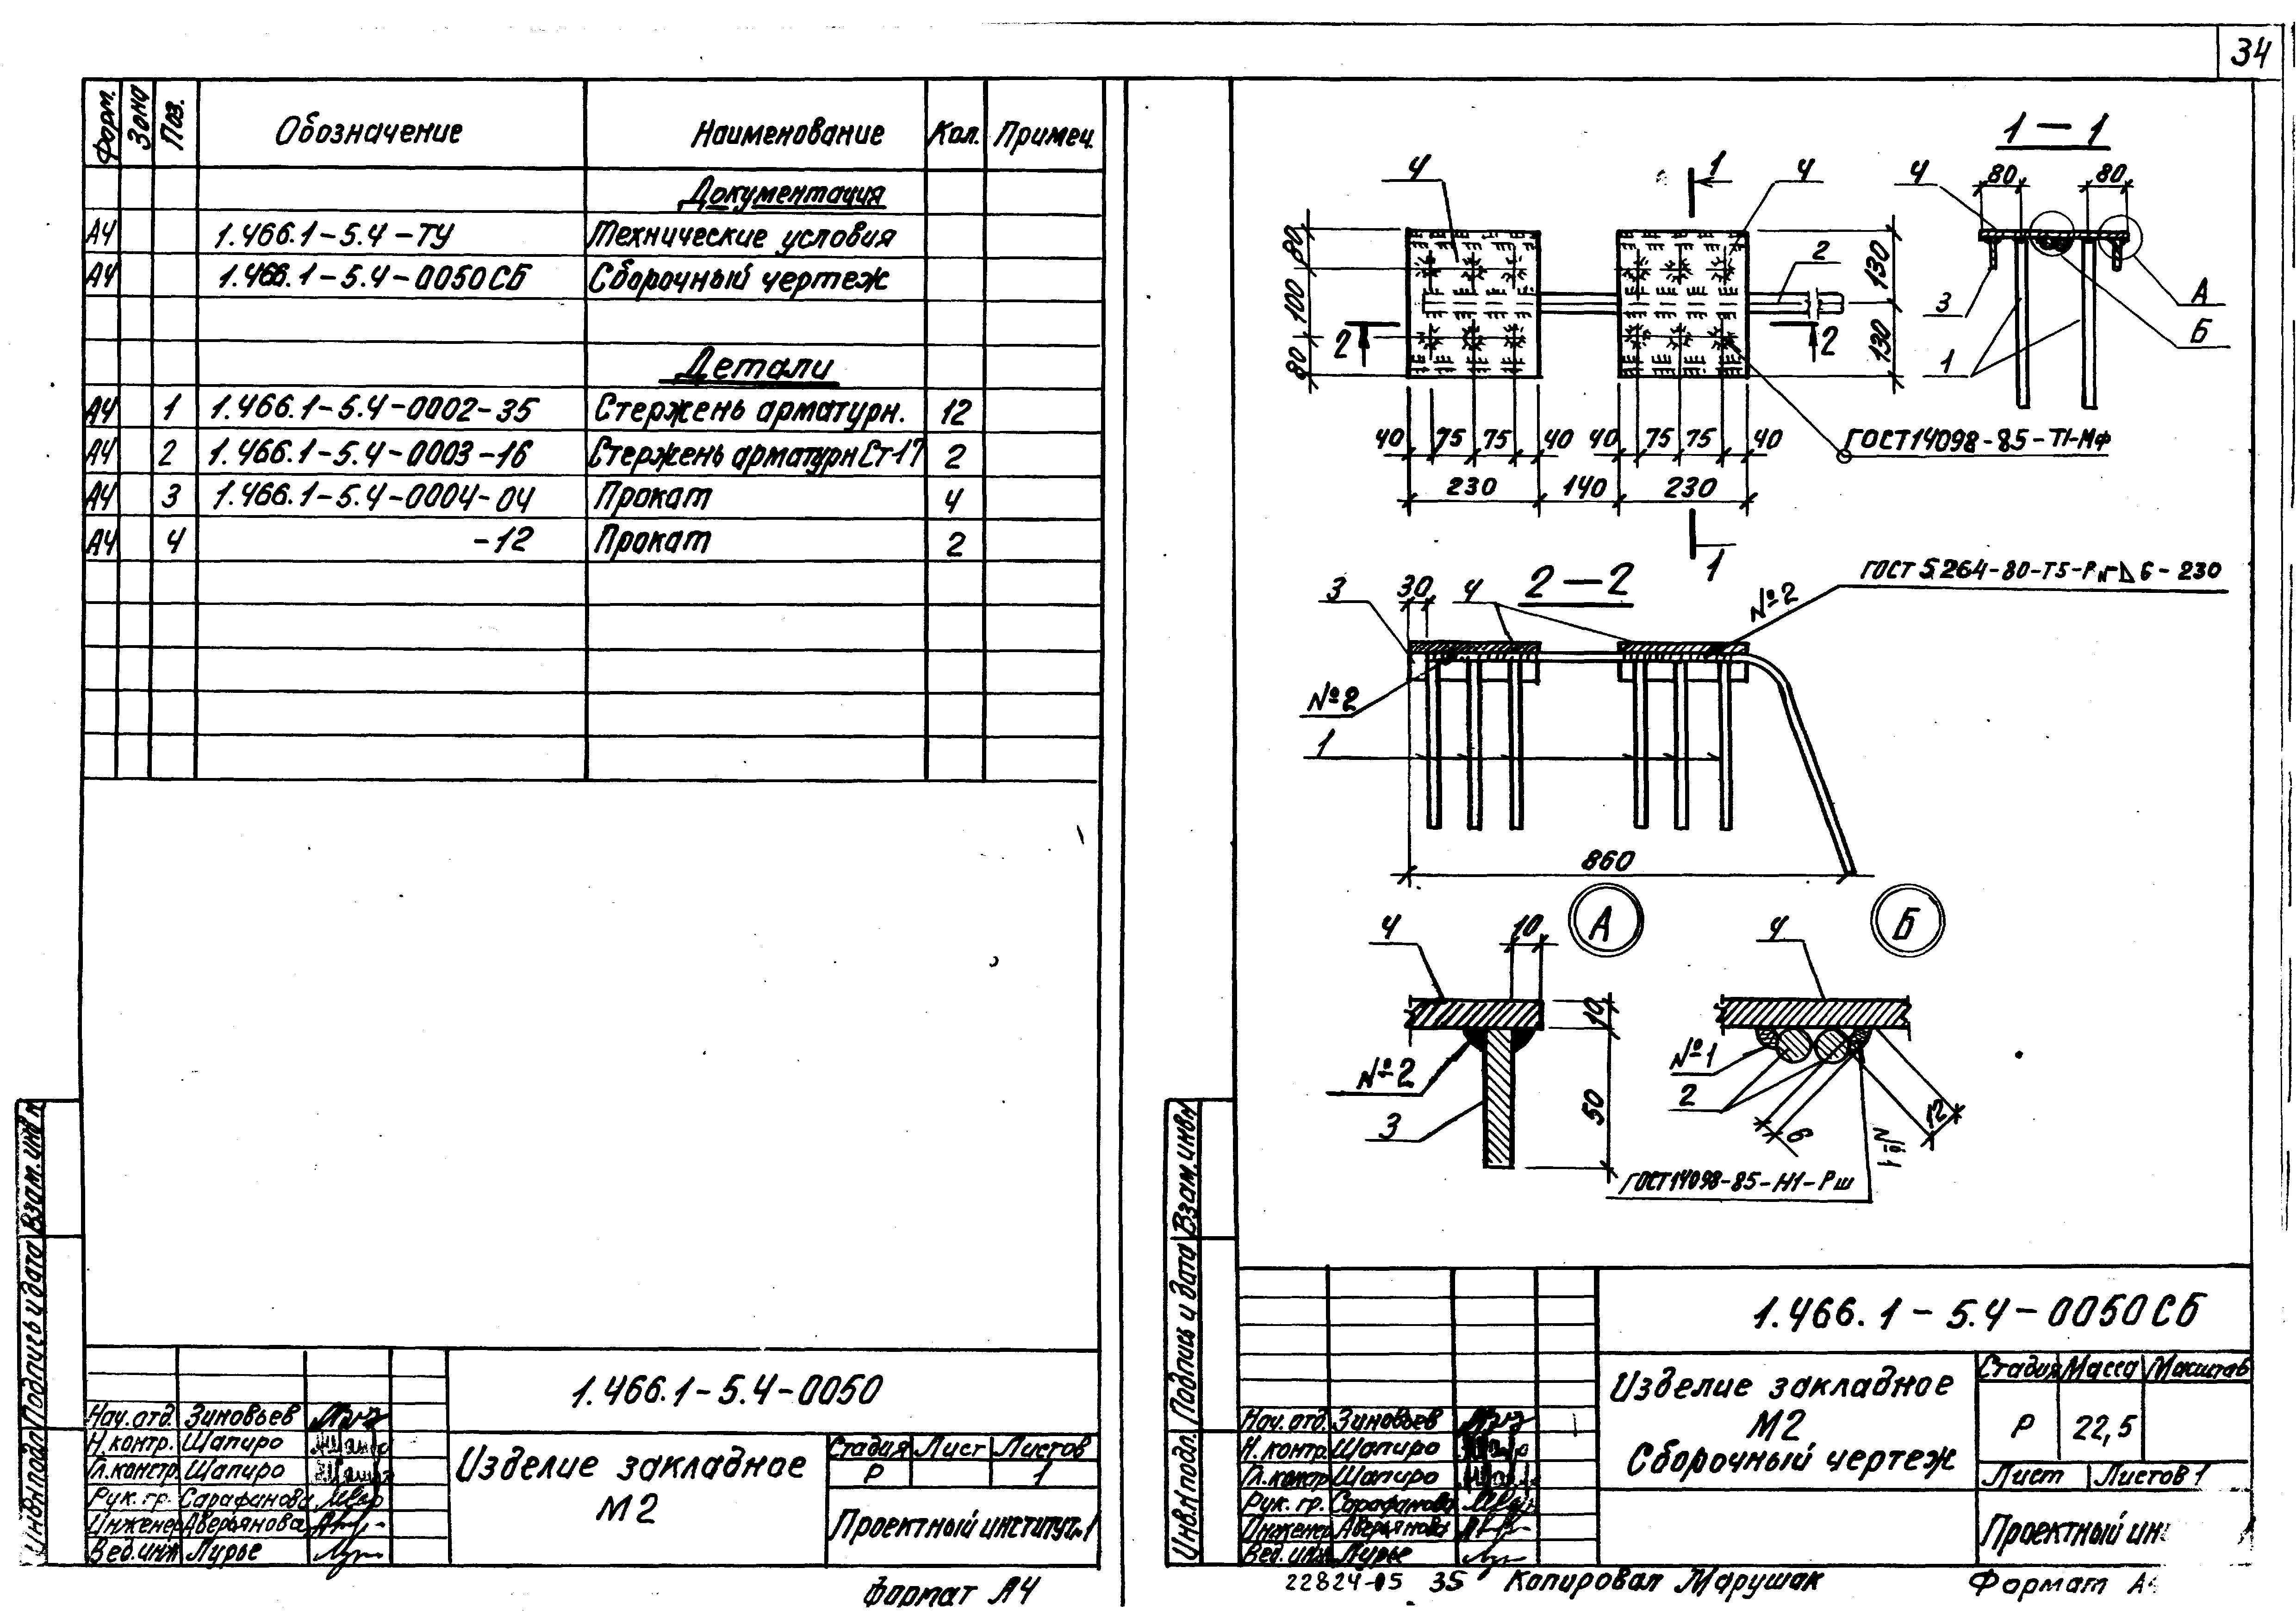 34
Форм. Зона Поз. Обозначение Наименование Кол. Примеч.
Документация
А4 1.466.1-5.4-ТУ Технические условия
А4 1.466.1-5.4-0050СБ Сборочный чертеж
Детали
А4 1 1.466.1-5.4-0002-35 Стержень арматурн. 12
А4 2 1.466.1-5.4-0003-16 Стержень арматурн Ст-17 2
А4 3 1.466.1-5.4-0004-04 Прокат 4
А4 4 -12 Прокат 2
Инв.№подл Подпись и дата Взам.инв №
1.466.1-5.4-0050
Нач.отд. Зиновьев
Н.контр. Шапиро
Гл.констр. Шапиро
Рук. гр. Сарафанова
Инженер Аверьянова
Вед.инж Лурье
Изделие закладное
М2
Стадия Лист Листов
Р 1
Проектный институт №1
Формат А4
4 1 4
80 100 80
2
130 130
2 2
40 75 75 40 40 75 75 40
230 140 230
1
ГОСТ14098-85-Т1-Мф
1-1
4 80 80
3 А
Б
1
2-2
3 30 4
№2
ГОСТ 5264-80-Т5-Рн-⊿6-230
№2
1
860
А
4 10
10
50
№2
3
Б
4
№1
2
6 12
№1
ГОСТ14098-85-Н1-Рш
Инв.№подл. Подпись и дата Взам.инв№
1.466.1-5.4-0050СБ
Нач.отд. Зиновьев
Н.контр. Шапиро
Гл.констр Шапиро
Рук. гр. Сарафанова
Инженер Аверьянова
Вед.инж Лурье
Изделие закладное
М2
Сборочный чертеж
Стадия Масса Масштаб
Р 22,5
Лист Листов 1
Проектный ин
22824-05 35 Копировал Марушак Формат А4